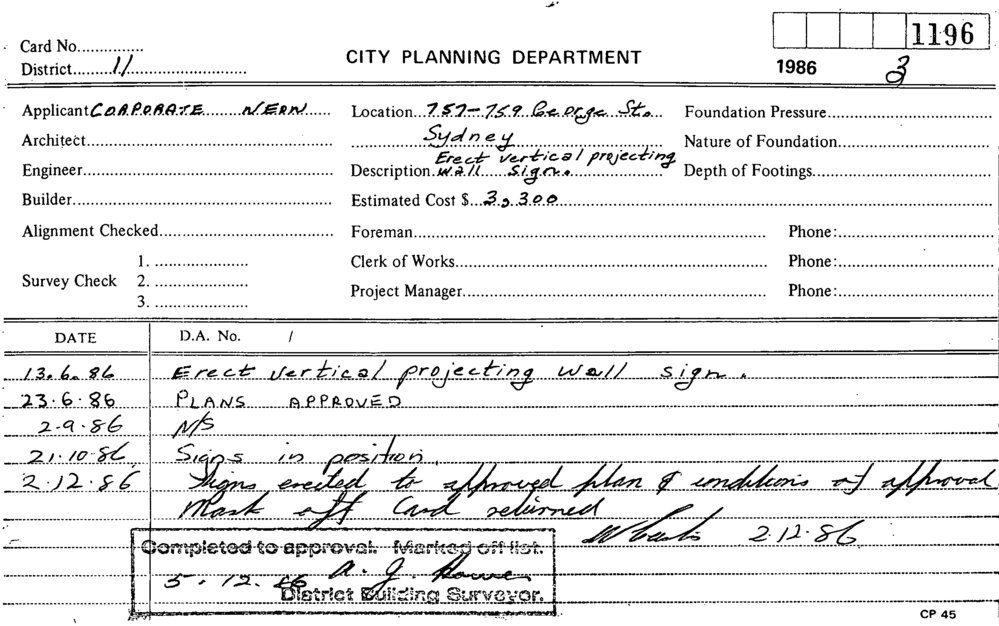 1196
Card No...............
District.........11...........................
CITY PLANNING DEPARTMENT
1986 3
Applicant CORPORATE NEON
Location...757-759 George St.
Sydney
Foundation Pressure
Architect
Nature of Foundation
Engineer
Description Erect vertical projecting
wall sign.
Depth of Footings
Builder
Estimated Cost $ 3,300
Alignment Checked
Foreman
Phone:
Survey Check 1.
2.
3.
Clerk of Works
Phone:
Project Manager
Phone:
DATE D.A. No. /
13.6.86 Erect vertical projecting wall sign.
23.6.86 PLANS APPROVED
2.9.86 N/S
21.10.86 Signs in position.
2.12.86 Signs erected to approved plan & conditions of approval
Mark off Card returned
2.12.86
Completed to approval. Marked off list.
5.12.86 A. J.
District Building Surveyor.
CP 45